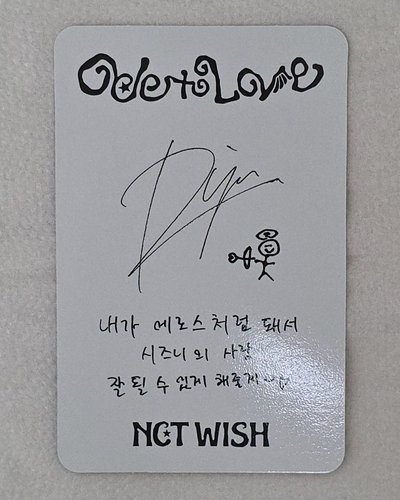 Ode to Love
Riku
내가 에로스처럼 돼서
시즈니의 사랑
잘 될 수 있게 해줄게
NCT WISH